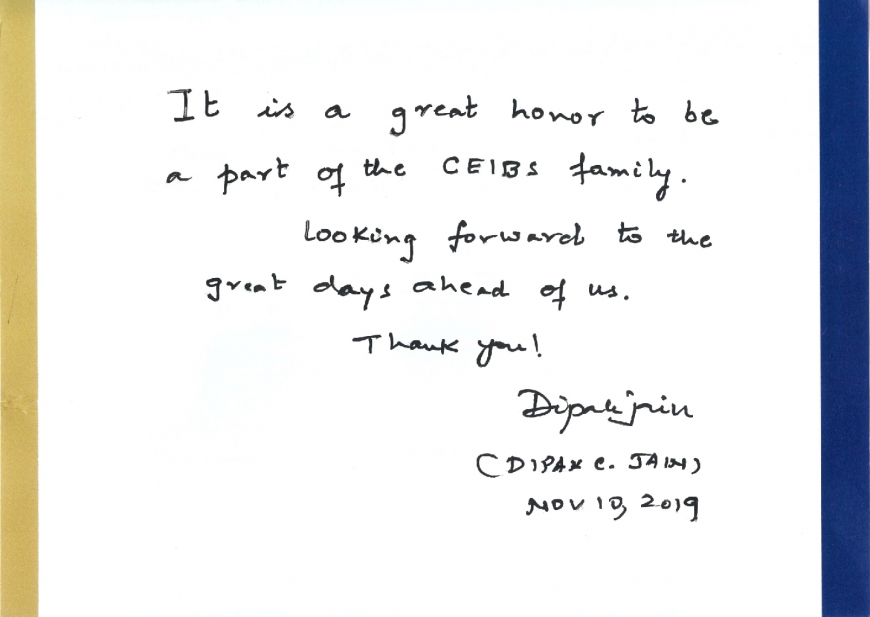 It is a great honor to be
a part of the CEIBS family.
Looking forward to the
great days ahead of us.
Thank you!
Dipak Jain
(DIPAK C. JAIN)
NOV 10, 2019